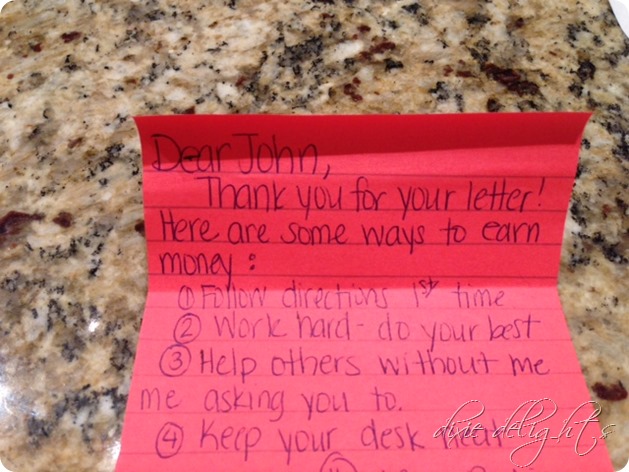 Dear John,
Thank you for your letter!
Here are some ways to earn
money:
① Follow directions 1st time
② Work hard - do your best
③ Help others without me
me asking you to.
④ Keep your desk neat
dixie delights